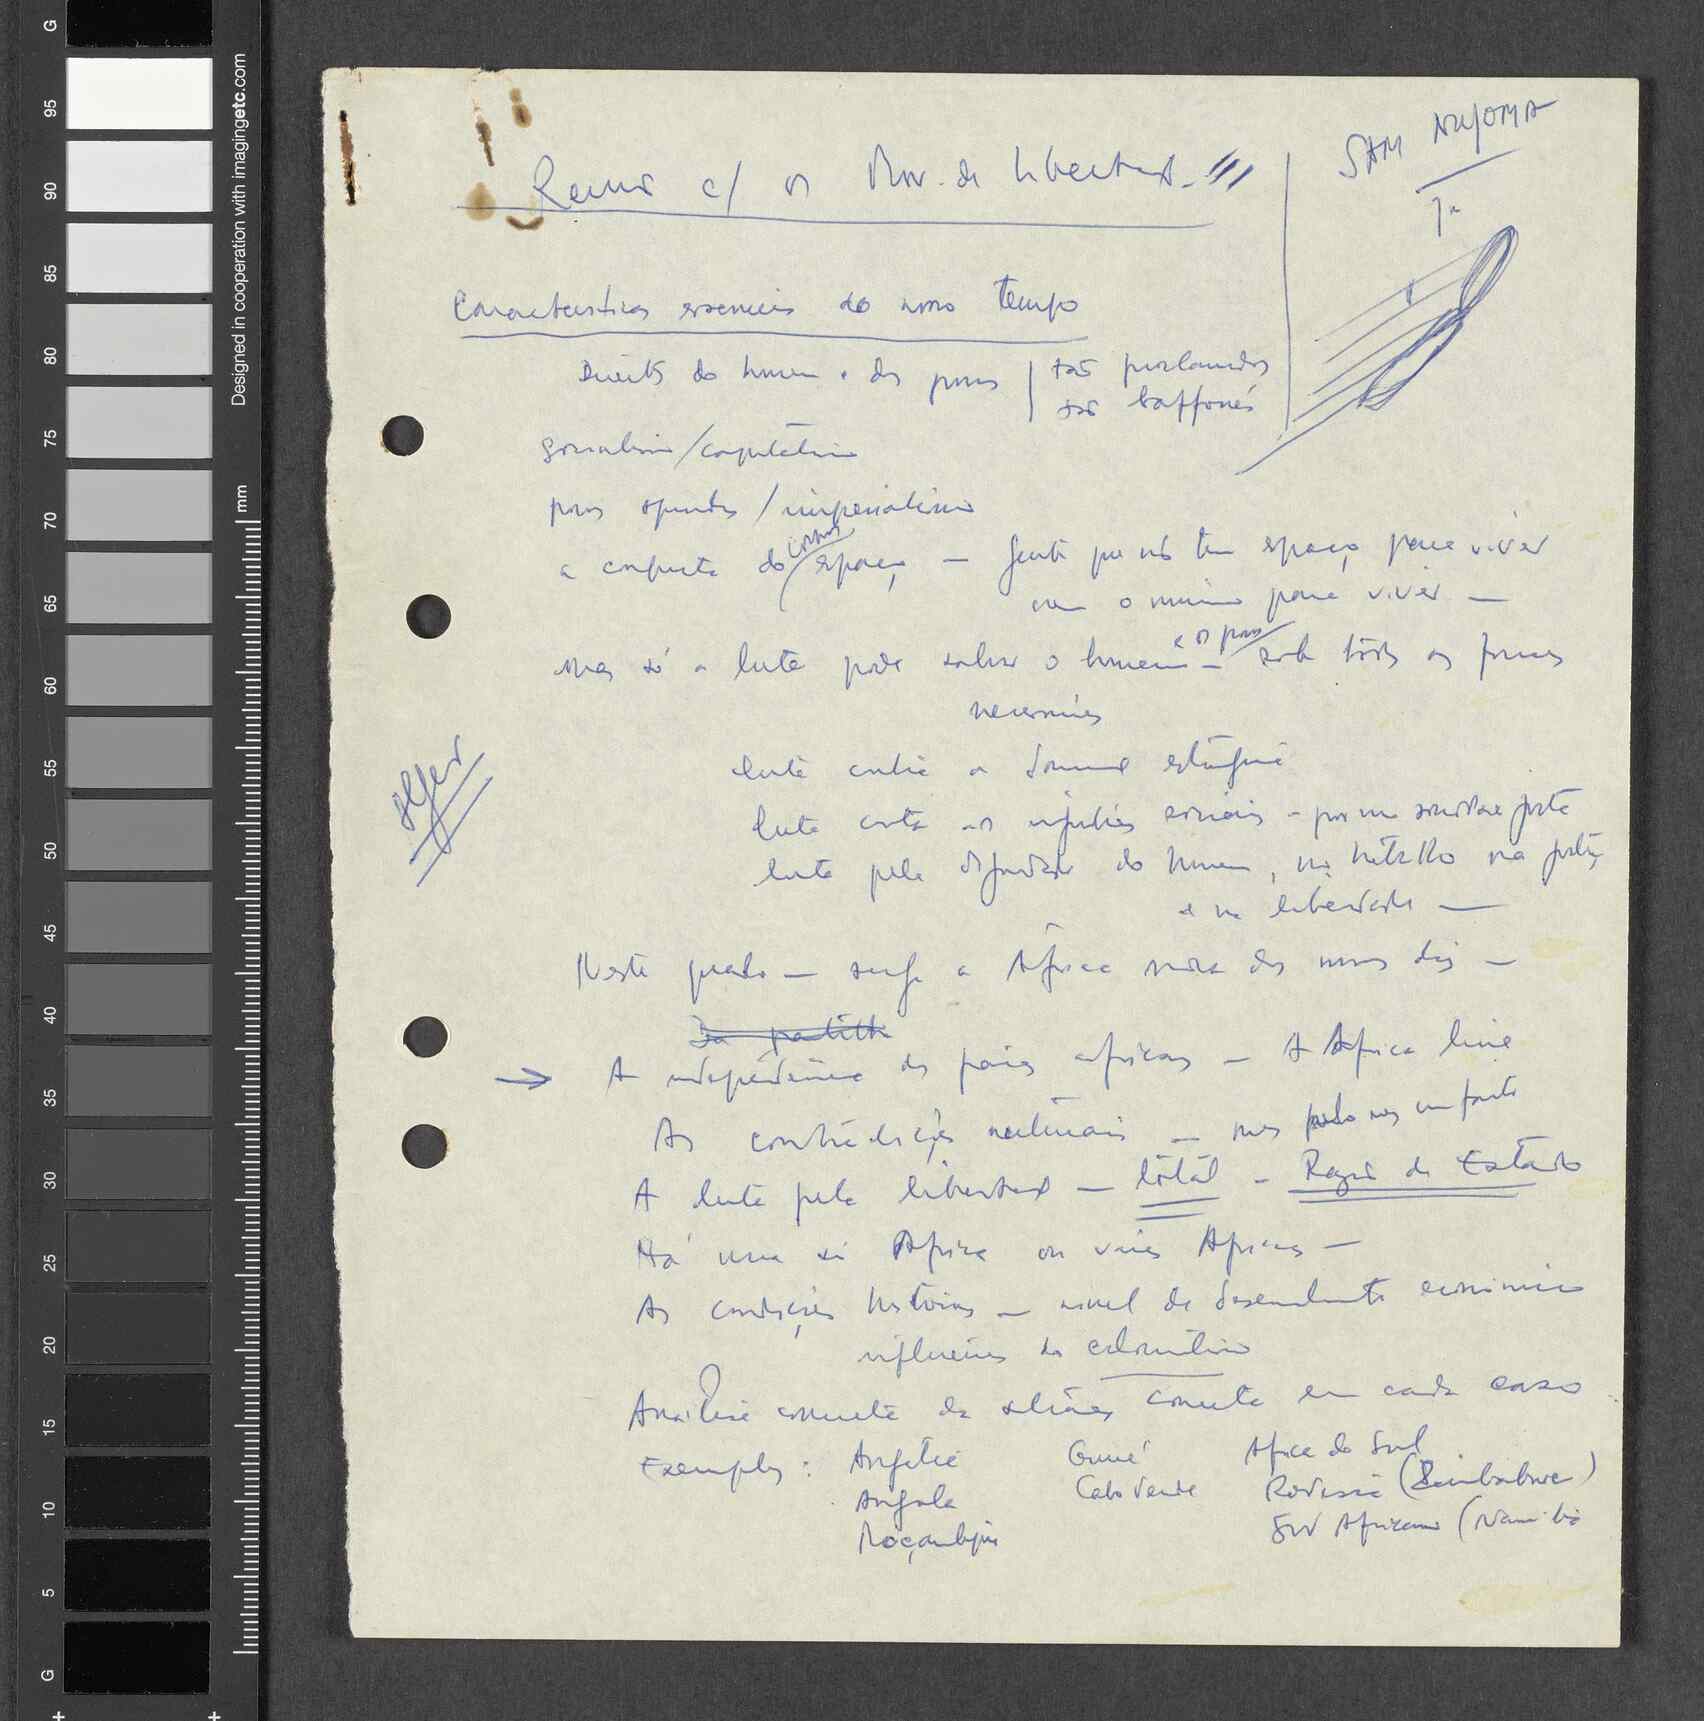 SAM NUJOMA
Reunião c/ os Mov. de Libertação
Características essenciais do nosso tempo
Direitos do homem e dos povos
tão proclamados
tão
socialismo/capitalismo
povos oprimidos / imperialismo
a conquista do cosmos
espaço — gente que não tem espaço para viver
nem o mínimo para viver —
mas só a luta pode salvar o homem — e os povos todas as forças
necessárias
luta contra a dominação estrangeira
luta contra as injustiças sociais - por uma sociedade justa
luta pela dignidade do homem, no trabalho na justiça
e na liberdade —
Neste quadro — surge a África nova dos nossos dias —
Da partilha
→ A independência dos países africanos — A África livre
As contradições naturais — mas um facto
A luta pela libertação — total - Razão de Estado
Há uma só África ou várias Áfricas —
As condições históricas — nível de desenvolvimento económico
influências do colonialismo
Análise concreta da situação concreta em cada caso
Exemplos : Argélia Guiné África do Sul
Angola Cabo Verde Rodésia (Zimbabwe)
Moçambique Sud Africano (Namíbia
Designed in cooperation with imagingetc.com
mm
G
95
90
85
80
75
70
65
60
55
50
45
40
35
30
25
20
15
10
5
G